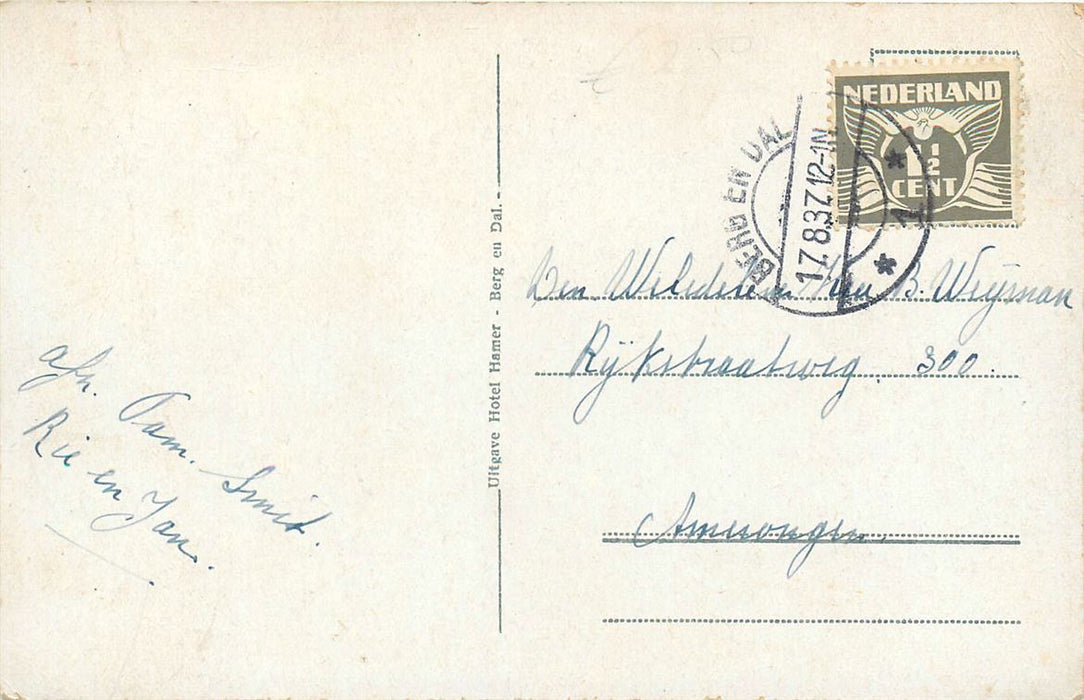 NEDERLAND
1½
CENT
BERG EN DAL
17.8.37.12-1N
1
Den Weledelen Heer B. Weijman
Rijkstraatweg 300.
Amerongen.
Uitgave Hotel Hamer - Berg en Dal. -
afz. Fam. Smit.
Rie en Jan.